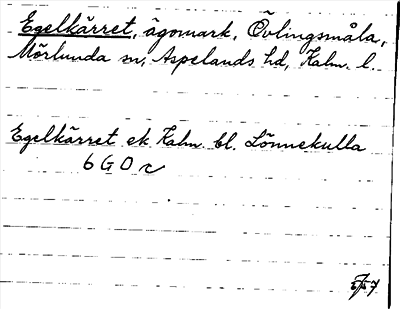 Egelkärret, ägomark, Övlingsmåla,
Mörlunda sn, Aspelands hd, Kalm. l.
Egelkärret ek Kalm. bl. Lönnekulla
6 G O c